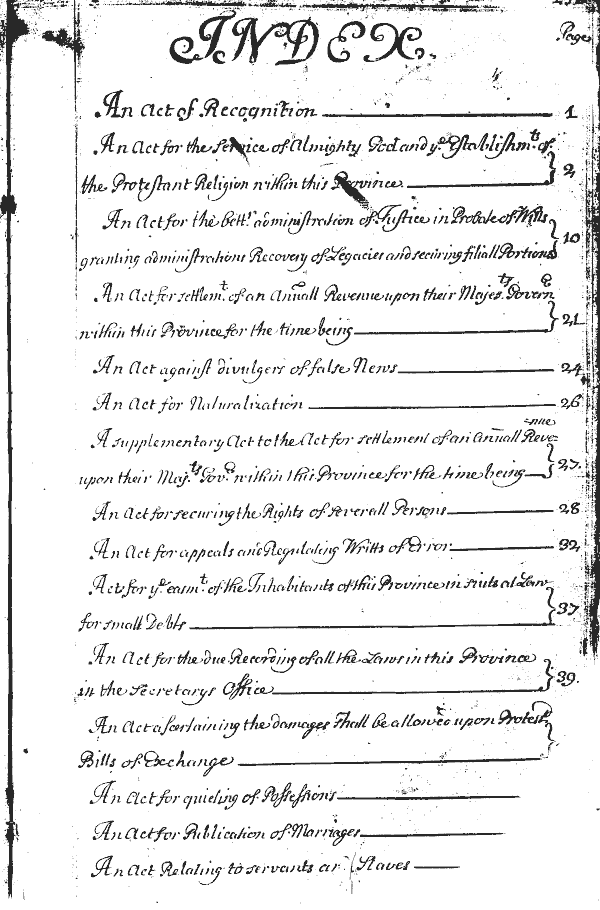 INDEX.
Page
An Act of Recognition 1
An Act for the Service of Almighty God and yᵉ Establishmᵗˢ of
the Protestant Religion within this Province 2
An Act for the bettʳ administration of Justice in Probate of Wills
granting administrations Recovery of Legacies and securing filiall Portions 10
An Act for settlemᵗ of an Anuall Revenue upon their Majesᵗʸˢ Govern
within this Province for the time being 21
An Act against divulgers of false News 24
An Act for Naturalization 26
A supplementary Act to the Act for settlement of an Anuall Reve=
=nue
upon their Majᵗʸˢ Govʳ within this Province for the time being 27.
An Act for securing the Rights of severall Persons 28
An Act for appeals and Regulating Writts of Error 32
Act for yᵉ easmᵗ of the Inhabitants of this Province in suits at Law
for small Debts 37
An Act for the due Recording of all the Laws in this Province
in the Secretarys Office 39.
An Act ascertaining the damages shall be allowed upon Protest
Bills of Exchange
An Act for quieting of Possessions
An Act for Publication of Marriages
An Act Relating to servants Slaves